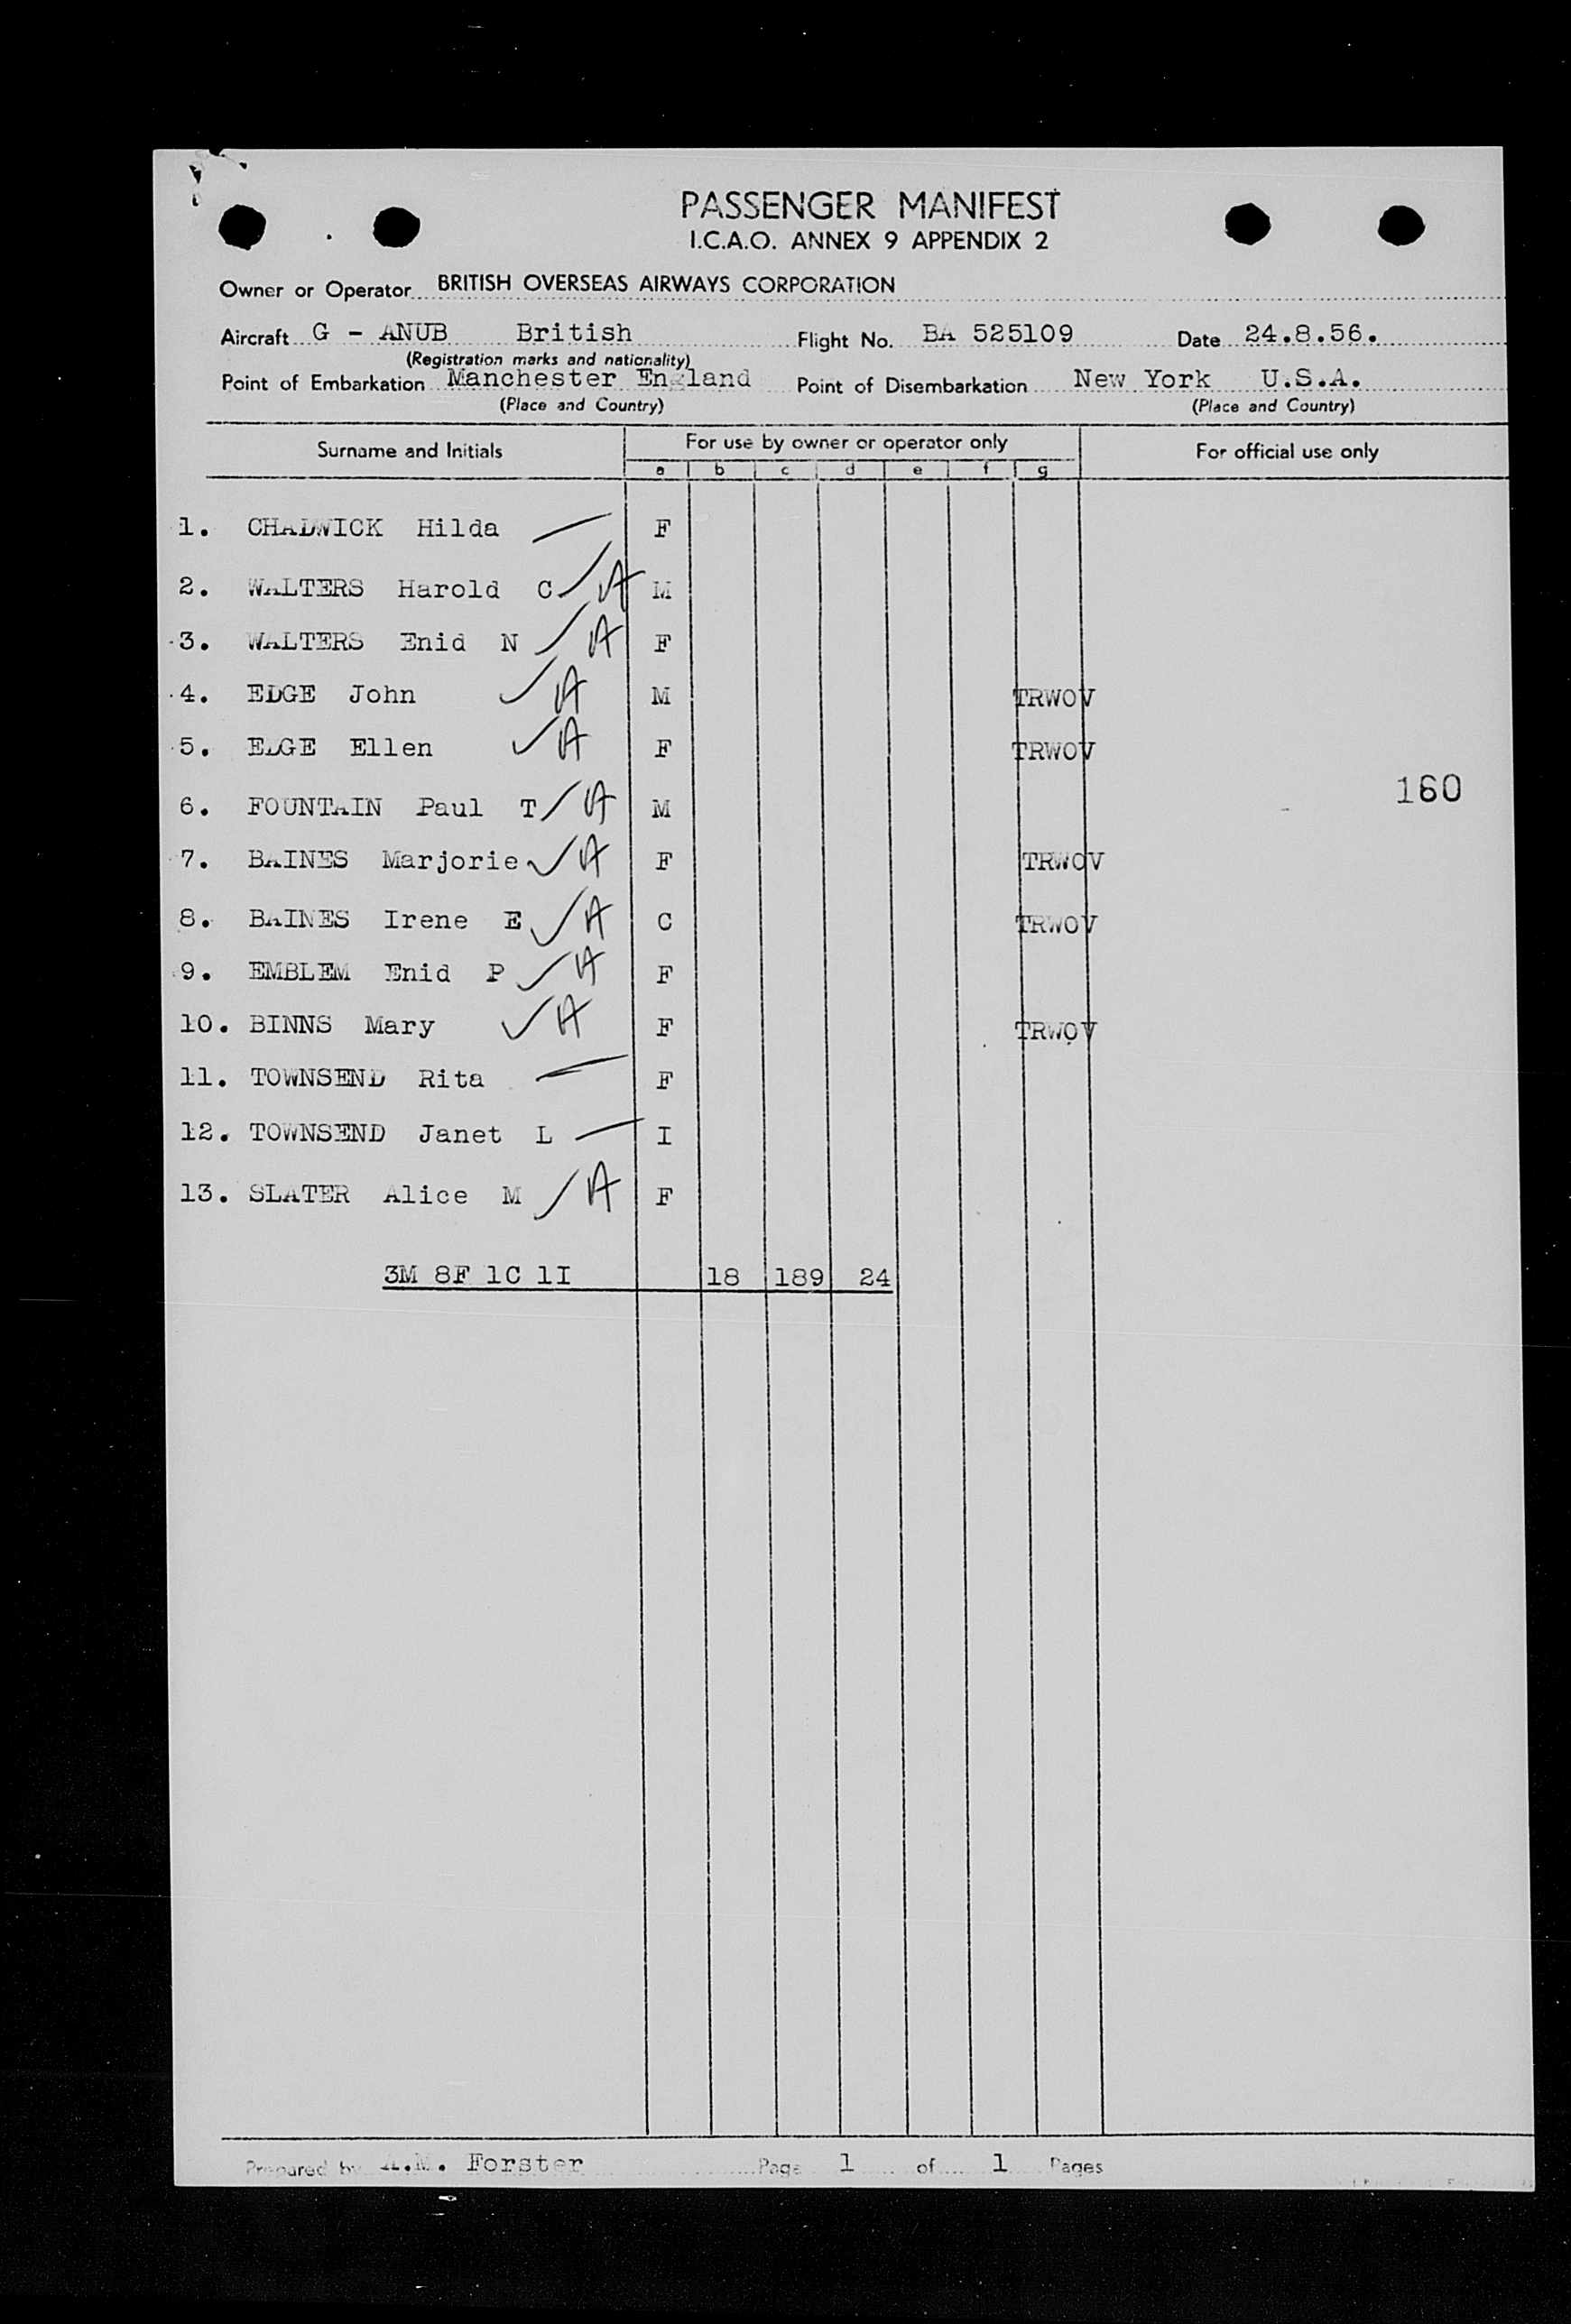 PASSENGER MANIFEST
I.C.A.O. ANNEX 9 APPENDIX 2
Owner or Operator BRITISH OVERSEAS AIRWAYS CORPORATION
Aircraft G - ANUB British Flight No. BA 525109 Date 24.8.56.
(Registration marks and nationality)
Point of Embarkation Manchester England Point of Disembarkation New York U.S.A.
(Place and Country) (Place and Country)
Surname and Initials For use by owner or operator only For official use only
a b c d e f g
1. CHADWICK Hilda F
2. WALTERS Harold C A M
3. WALTERS Enid N A F
4. EDGE John A M TRWOV
5. EDGE Ellen A F TRWOV
160
6. FOUNTAIN Paul T A M
7. BAINES Marjorie A F TRWOV
8. BAINES Irene E A C TRWOV
9. EMBLEM Enid P A F
10. BINNS Mary A F TRWOV
11. TOWNSEND Rita F
12. TOWNSEND Janet L I
13. SLATER Alice M A F
3M 8F 1C 1I 18 189 24
Prepared by Forster Page 1 of 1 Pages